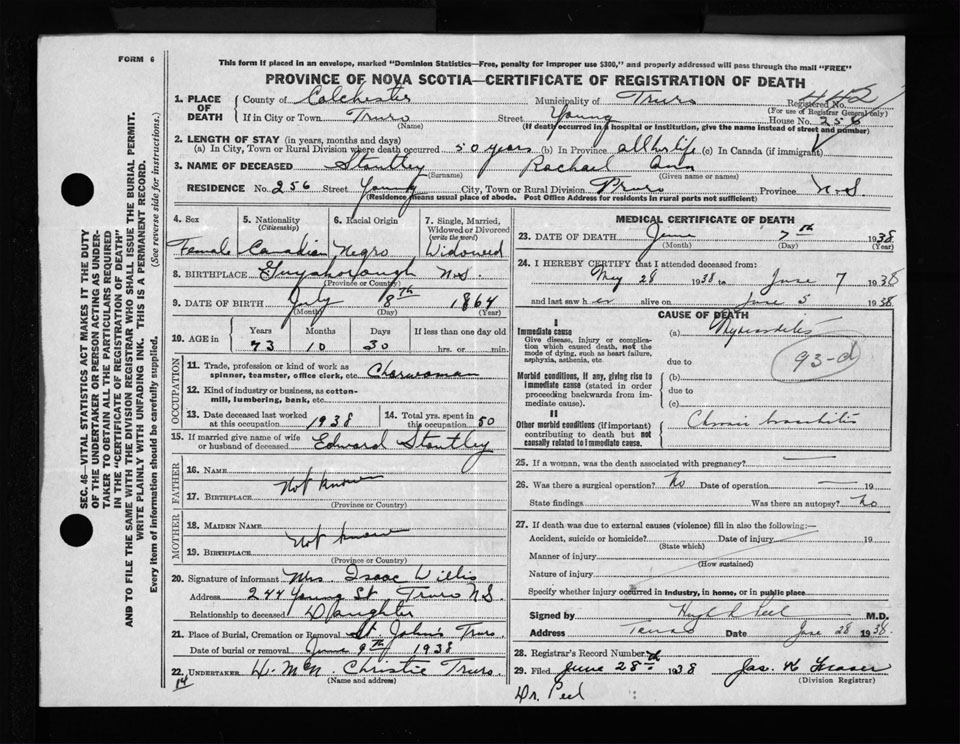 FORM 6
This form if placed in an envelope, marked "Dominion Statistics—Free, penalty for improper use $300," and properly addressed will pass through the mail "FREE"
PROVINCE OF NOVA SCOTIA—CERTIFICATE OF REGISTRATION OF DEATH
1. PLACE OF DEATH
County of Colchester Municipality of Truro Registered No. 442
(For use of Registrar General only)
If in City or Town Truro Street Young House No. 256
(Name) (If death occurred in a hospital or institution, give the name instead of street and number)
2. LENGTH OF STAY (in years, months and days)
(a) In City, Town or Rural Division where death occurred 50 years (b) In Province all her life (c) In Canada (if immigrant)
3. NAME OF DECEASED Stoutley Rachael Ann
(Surname) (Given name or names)
RESIDENCE No. 256 Street Young City, Town or Rural Division Truro Province N.S
(Residence means usual place of abode. Post Office Address for residents in rural parts not sufficient)
4. Sex 5. Nationality (Citizenship) 6. Racial Origin 7. Single, Married, Widowed or Divorced (write the word)
Female Canadian Negro Widowed
8. BIRTHPLACE Guysborough N.S.
(Province or Country)
9. DATE OF BIRTH July 8th 1864
(Month) (Day) (Year)
10. AGE in Years Months Days If less than one day old
73 10 30 hrs. or min.
OCCUPATION
11. Trade, profession or kind of work as spinner, teamster, office clerk, etc. Charwoman
12. Kind of industry or business, as cotton-mill, lumbering, bank, etc.
13. Date deceased last worked at this occupation 1938 14. Total yrs. spent in 50
15. If married give name of wife or husband of deceased Edward Stoutley
FATHER
16. NAME
Not known
17. BIRTHPLACE
(Province or Country)
MOTHER
18. MAIDEN NAME
Not known
19. BIRTHPLACE
(Province or Country)
20. Signature of informant Mrs. Isaac Willis
Address 244 Young St Truro N.S.
Relationship to deceased Daughter
21. Place of Burial, Cremation or Removal St. John's Truro.
Date of burial or removal June 9th 1938
22. UNDERTAKER Christie Truro.
(Name and address)
14
MEDICAL CERTIFICATE OF DEATH
23. DATE OF DEATH June 7th 1938
(Month) (Day) (Year)
24. I HEREBY CERTIFY that I attended deceased from:
May 28 1938 to June 7 1938
and last saw her alive on June 5 1938
CAUSE OF DEATH
I
Immediate cause (a) Myocarditis
Give disease, injury or complication which caused death, not the mode of dying, such as heart failure, asphyxia, asthenia, etc.
93-d
due to
Morbid conditions, if any, giving rise to immediate cause (stated in order proceeding backwards from immediate cause).
(b)
due to
(c)
II
Other morbid conditions (if important) contributing to death but not causally related to immediate cause.
Chronic bronchitis
25. If a woman, was the death associated with pregnancy? —
26. Was there a surgical operation? No Date of operation — 19
State findings Was there an autopsy? No
27. If death was due to external causes (violence) fill in also the following:—
Accident, suicide or homicide? Date of injury 19
(State which)
Manner of injury
(How sustained)
Nature of injury
Specify whether injury occurred in industry, in home, or in public place
Signed by Peel M.D.
Address Truro Date June 28 1938.
28. Registrar's Record Number
29. Filed June 28th 1938 Jas. K Fraser
(Division Registrar)
Dr. Peel
SEC. 46—VITAL STATISTICS ACT MAKES IT THE DUTY
OF THE UNDERTAKER OR PERSON ACTING AS UNDER-
TAKER TO OBTAIN ALL THE PARTICULARS REQUIRED
IN THE "CERTIFICATE OF REGISTRATION OF DEATH"
AND TO FILE THE SAME WITH THE DIVISION REGISTRAR WHO SHALL ISSUE THE BURIAL PERMIT.
WRITE PLAINLY WITH UNFADING INK. THIS IS A PERMANENT RECORD.
Every item of information should be carefully supplied. (See reverse side for instructions.)